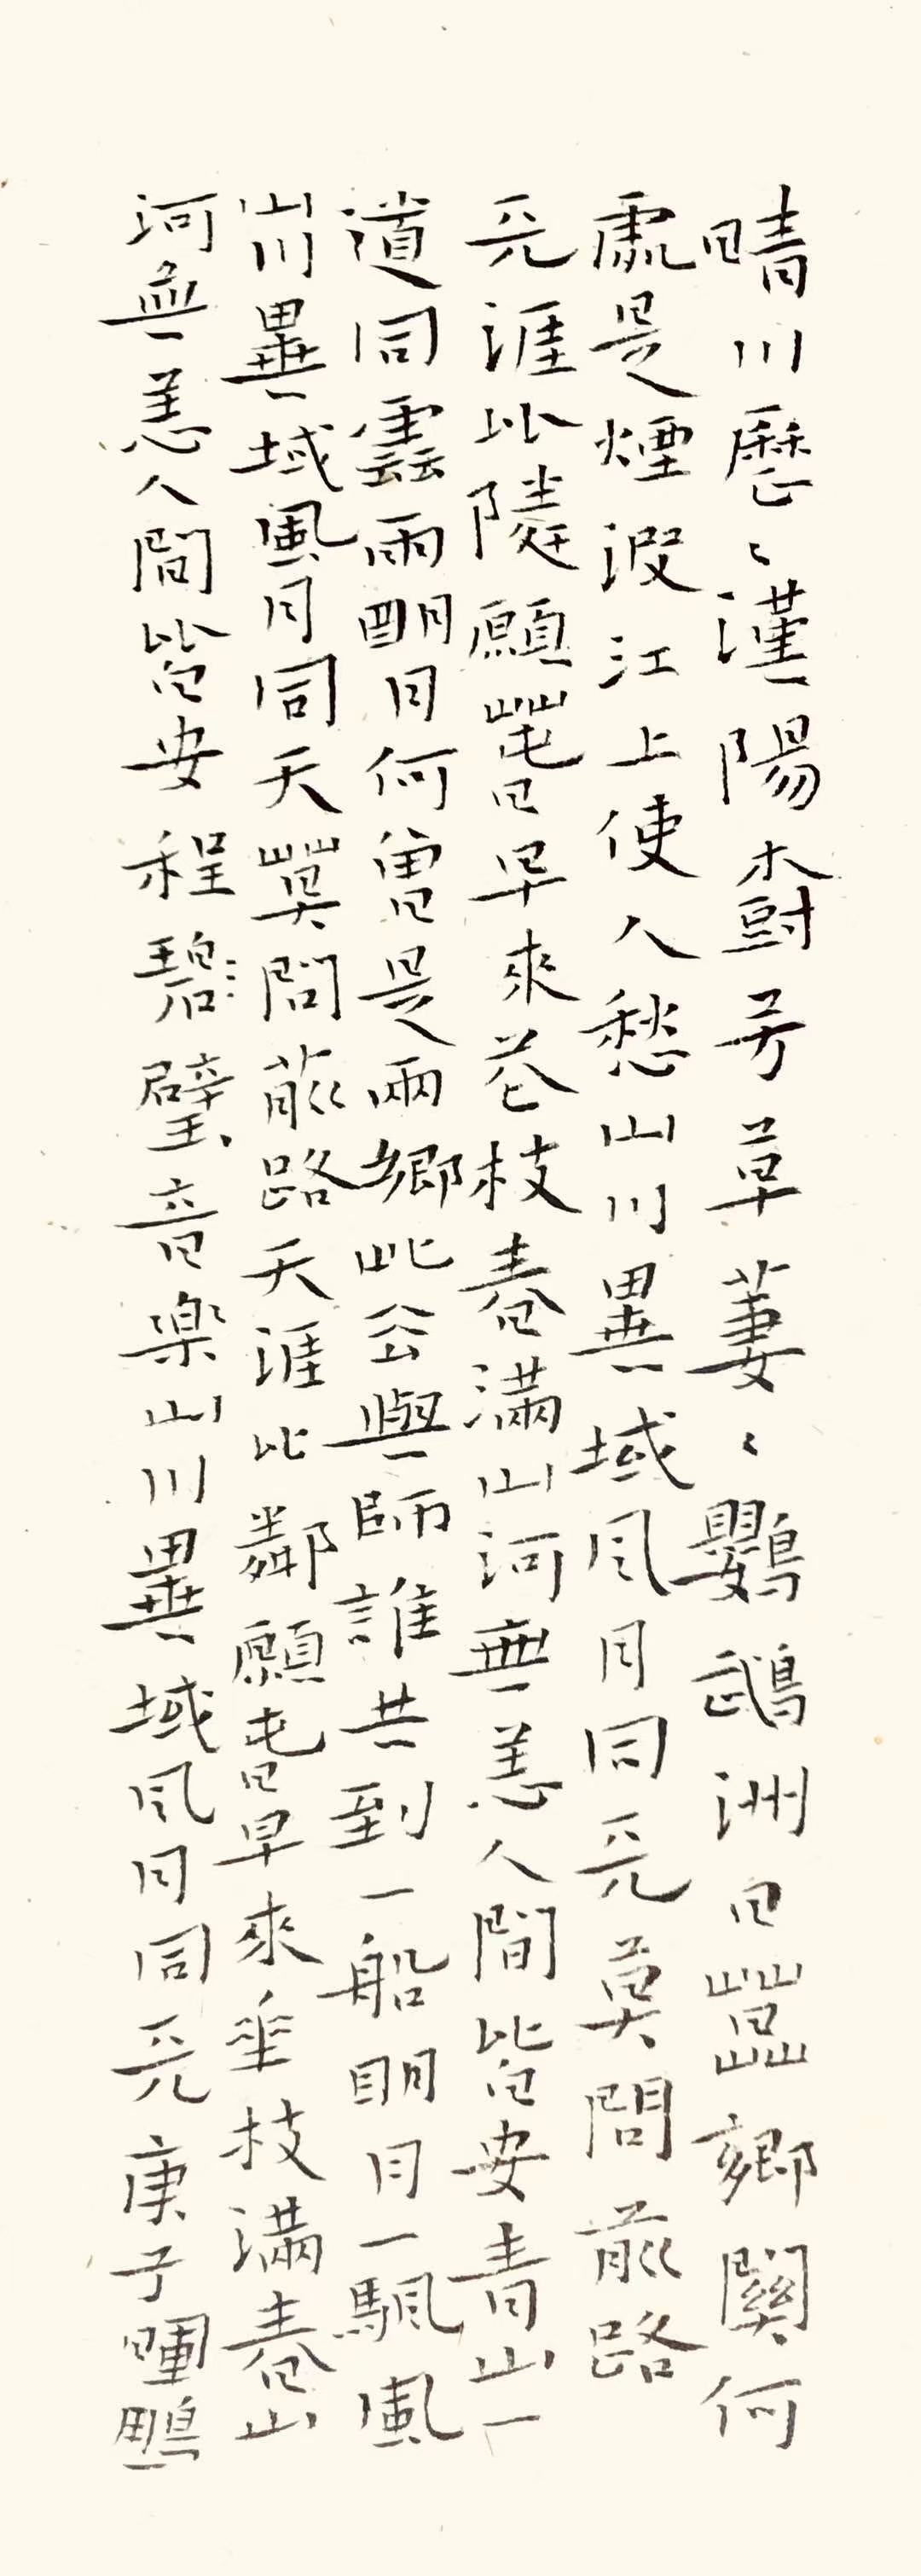 晴川歷〻漢陽樹芳草萋〻鸚鵡洲日暮鄉關何
處是煙波江上使人愁山川異域風月同天莫問前路
天涯比隣願春早來花枝春滿山河無恙人間皆安青山一
道同雲雨明月何曾是兩鄉此公與師誰共到一船明月一颿風
山川異域風月同天莫問前路天涯比鄰願春早來垂枝滿春山
河無恙人間皆安程碧璧音樂山川異域風月同天庚子暉鴨